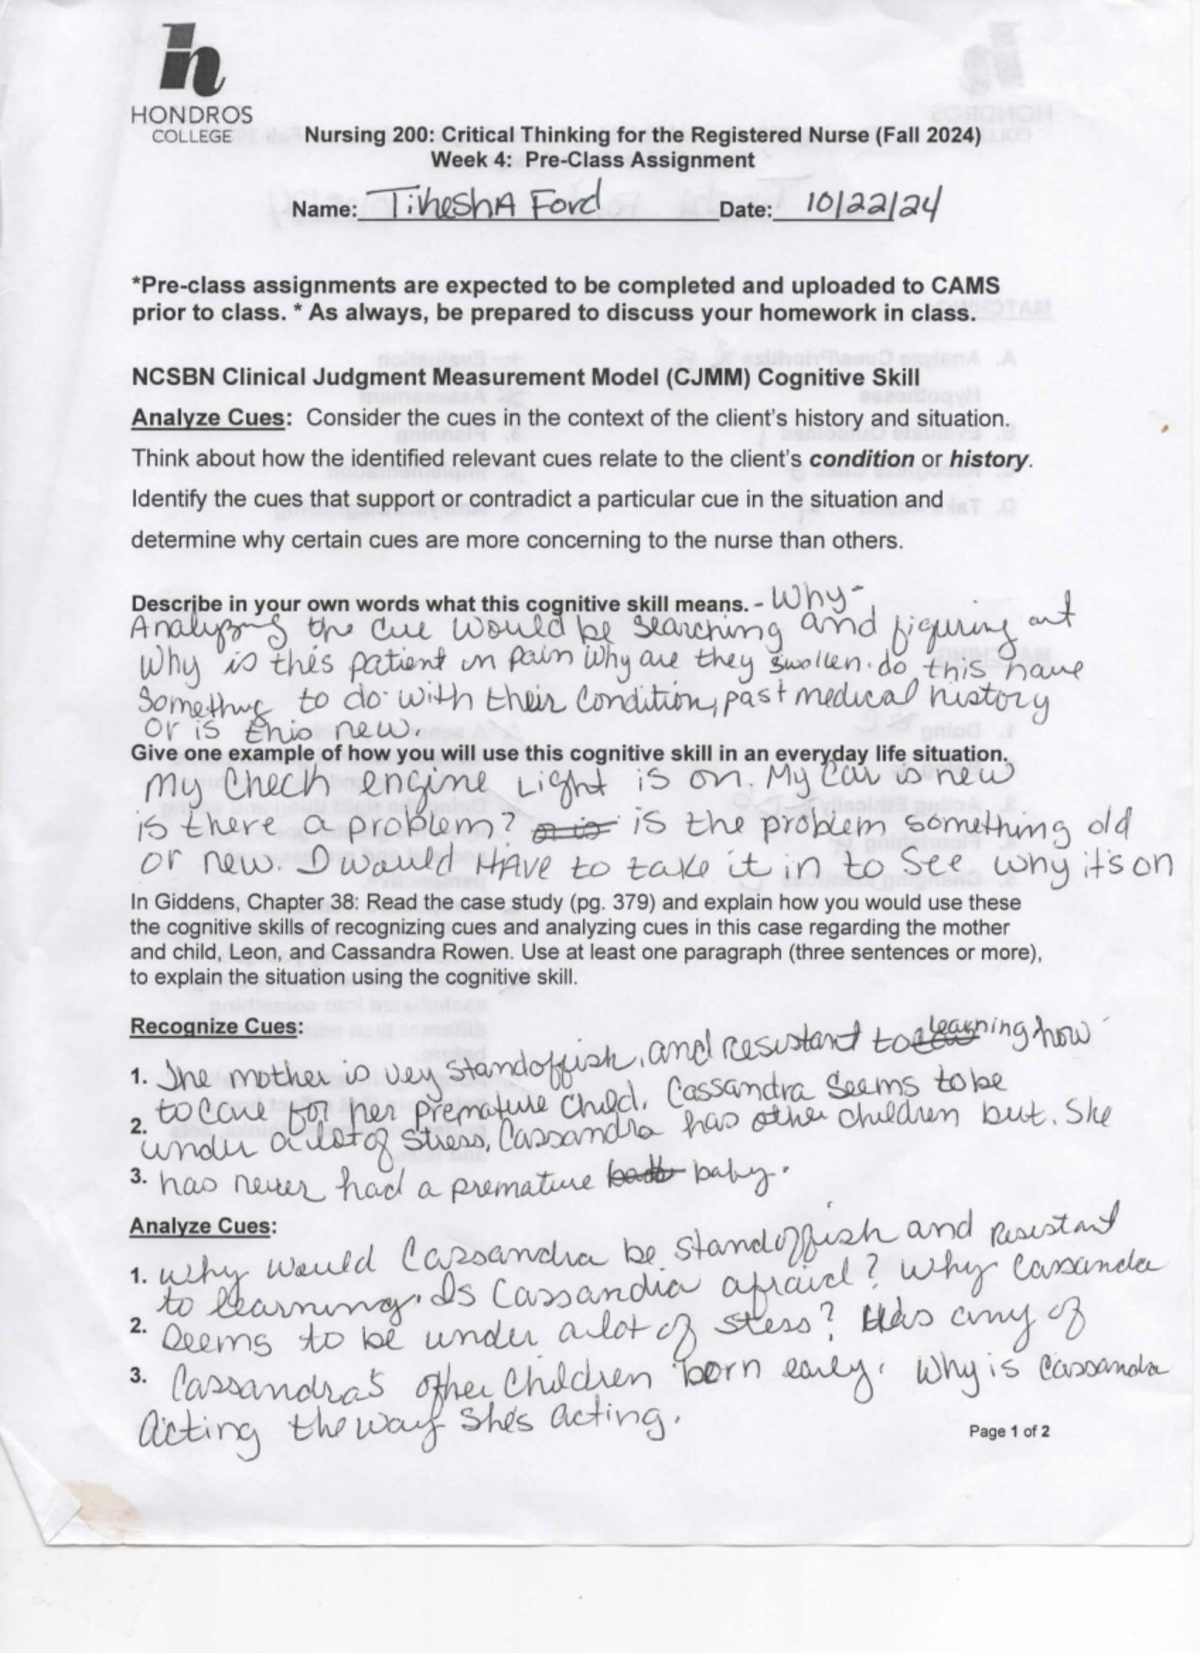 HONDROS
COLLEGE
Nursing 200: Critical Thinking for the Registered Nurse (Fall 2024)
Week 4: Pre-Class Assignment
Name: TikeshA Ford Date: 10/22/24
*Pre-class assignments are expected to be completed and uploaded to CAMS
prior to class. * As always, be prepared to discuss your homework in class.
NCSBN Clinical Judgment Measurement Model (CJMM) Cognitive Skill
Analyze Cues: Consider the cues in the context of the client's history and situation.
Think about how the identified relevant cues relate to the client's condition or history.
Identify the cues that support or contradict a particular cue in the situation and
determine why certain cues are more concerning to the nurse than others.
Describe in your own words what this cognitive skill means. - Why-
Analyzing the cue would be searching and figuring out
why is this patient in pain why are they swollen. do this have
something to do with their condition, past medical history
or is this new.
Give one example of how you will use this cognitive skill in an everyday life situation.
My Check engine Light is on. My Car is new
is there a problem? or is is the problem something old
or new. I would HAve to take it in to see why it's on
In Giddens, Chapter 38: Read the case study (pg. 379) and explain how you would use these
the cognitive skills of recognizing cues and analyzing cues in this case regarding the mother
and child, Leon, and Cassandra Rowen. Use at least one paragraph (three sentences or more),
to explain the situation using the cognitive skill.
Recognize Cues:
1. The mother is very standoffish, and resistant to learning how
to care for her premature child. Cassandra seems to be
2. under a lot of stress, Cassandra has other children but. She
3. has never had a premature baby.
Analyze Cues:
1. Why would Cassandra be standoffish and resistant
to learning. Is Cassandra afraid? Why Cassanda
2. seems to be under a lot of stess? Has any of
3. Cassandra's other children born early. Why is Cassandra
acting the way she's acting.
Page 1 of 2